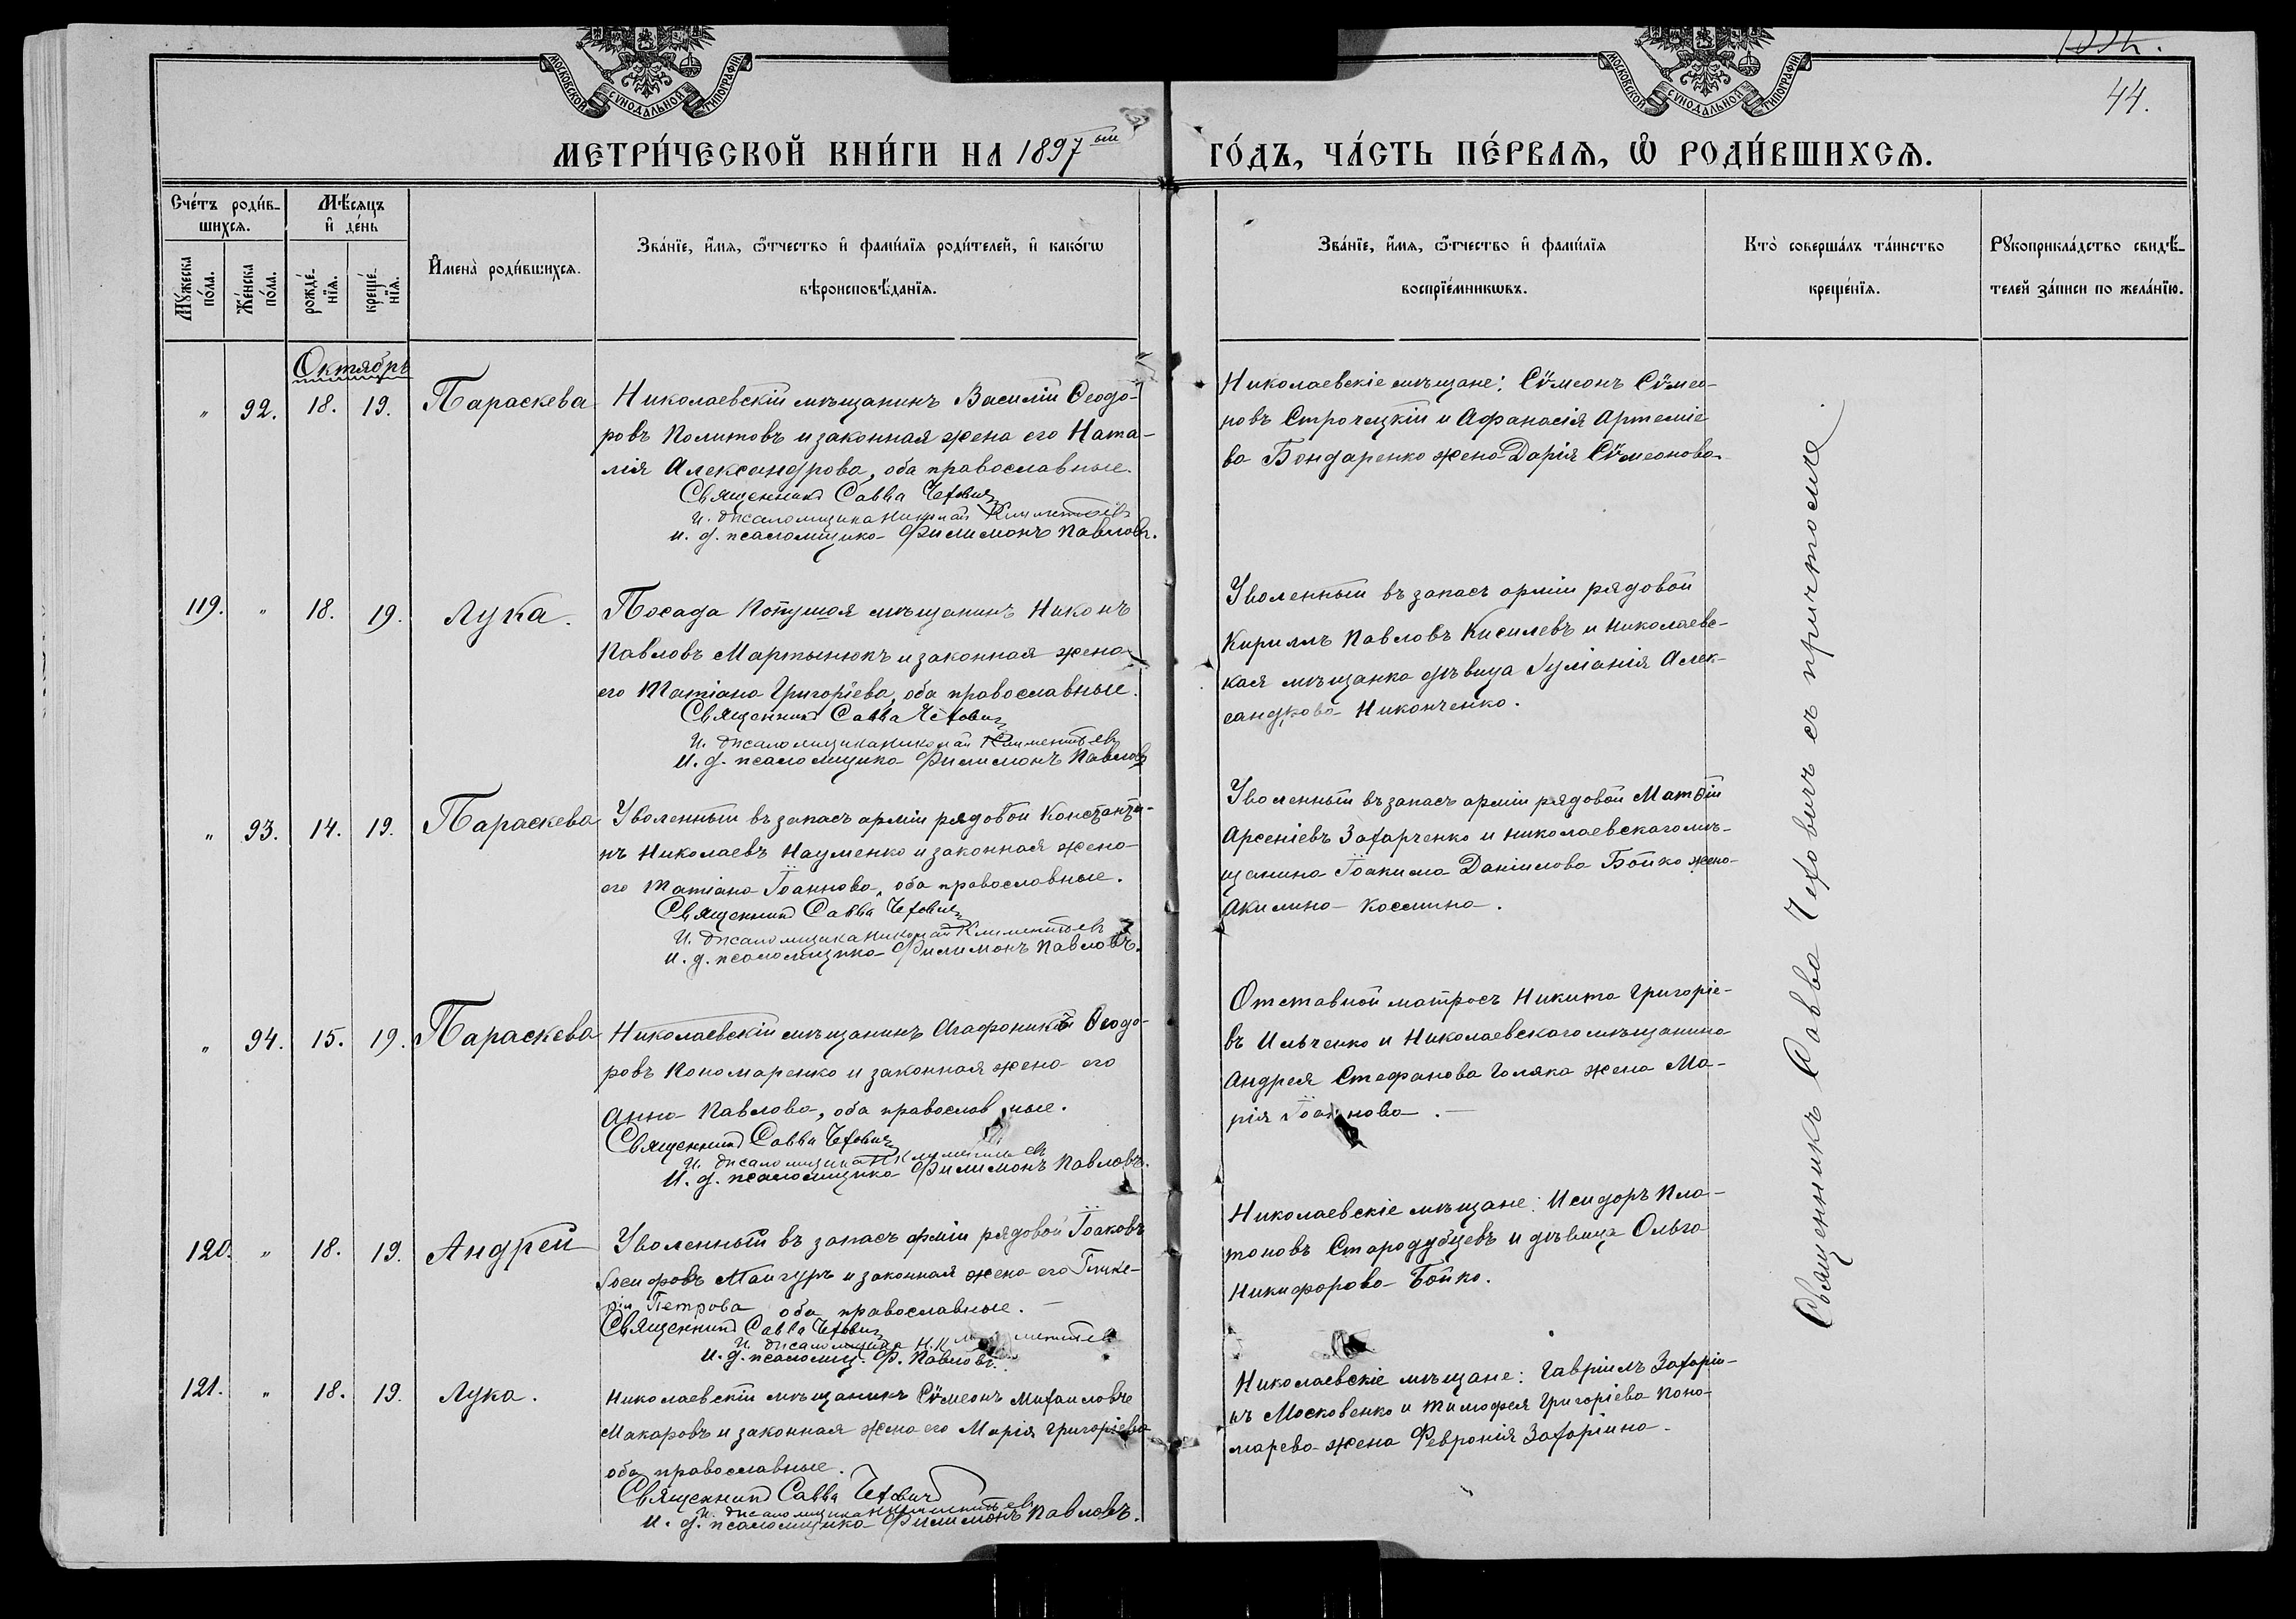 МОСКОВСКОЙ СУНОДАЛЬНОЙ ТИПОГРАФІИ
МОСКОВСКОЙ СУНОДАЛЬНОЙ ТИПОГРАФІИ
44.
МЕТРИ́ЧЕСКОЙ КНИ́ГИ НА 1897ый
ГО́ДЪ, ЧА́СТЬ ПЕ́РВАѦ, Ѽ РОДИ́ВШИХСѦ.
Сче́тъ роди́в-
шихсѧ.
Мꙋ́жеска по́ла.
Же́нска по́ла.
Мѣ́сѧцъ
и҆ де́нь
рожде́-
нїѧ.
креще́-
нїѧ.
И҆мена̀ роди́вшихсѧ.
Зва́нїе, и҆́мѧ, ѻ҆́тчество и҆ фами́лїѧ роди́телей, и҆ како́гѡ
вѣроисповѣ́данїѧ.
Зва́нїе, и҆́мѧ, ѻ҆́тчество и҆ фами́лїѧ
воспрїе́мникѡвъ.
Кто̀ соверша́лъ та́инство
креще́нїѧ.
Рꙋкоприкла́дство свидѣ́-
телей за́писи по жела́нїю.
Октябрь
" 92. 18. 19. Параскева
Николаевскій мѣщанинъ Василій Ѳеодо-
ровъ Политовъ и законная жена его Ната-
лія Александрова, оба православные.
Священникъ Савва Чехович
И. д. псаломщика Николай Климентьевъ
И. д. псаломщика Филимонъ Павловъ.
Николаевскіе мѣщане: Сѵмеонъ Сѵмео-
новъ Строчецкій и Афанасія Артеміе
ва Бондаренко жена Дарія Сѵмеонова.
119. " 18. 19. Лука.
Посада мѣщанинъ Никонъ
Павловъ Мартынюкъ и законная жена
его Татіана Григоріева, оба православные.
Священникъ Савва Чехович
И. д. псаломщика Николай Климентьевъ
И. д. псаломщика Филимонъ Павловъ
Уволенный въ запасъ арміи рядовой
Кириллъ Павловъ Киселевъ и Николаевс-
кая мѣщанка дѣвица Іуліанія Алек-
сандрова Никонченко.
" 93. 14. 19. Параскева
Уволенный въ запасъ арміи рядовой Константи-
нъ Николаевъ Науменко и законная жена
его Татіана Іоаннова, оба православные.
Священникъ Савва Чехович
И. д. псаломщика Николай Климентьевъ
И. д. псаломщика Филимонъ Павловъ.
Уволенный въ запасъ арміи рядовой Матѳій
Арсеніевъ Захарченко и николаевскаго мѣ-
щанина Іоакима Даніилова Бойко жена
Акилина Космина.
" 94. 15. 19. Параскева
Николаевскій мѣщанинъ Агафоникъ Ѳеодо-
ровъ Пономаренко и законная жена его
Анна Павлова, оба православные.
Священникъ Савва Чехович
И. д. псаломщика Н Климентьевъ
И. д. псаломщика Филимонъ Павловъ.
Отставной матросъ Никита Григоріе-
въ Ильченко и Николаевскаго мѣщанина
Андрея Стефанова Голяка жена Ма-
рія Іоаннова.
120. " 18. 19. Андрей
Уволенный въ запасъ арміи рядовой Іоаковъ
Іосифовъ и законная жена его Глике-
рія Петрова оба православные.
Священникъ Савва Чехович
И. д. псаломщика Н. Климентьевъ
И. д. псаломщ. Ф. Павловъ.
Николаевскіе мѣщане: Исидоръ Пла-
тоновъ Стародубцевъ и дѣвица Ольга
Никифорова Бойко.
121. " 18. 19. Лука.
Николаевскій мѣщанинъ Сѵмеонъ Михаиловъ
Макаровъ и законная жена его Марія Григоріева
оба православные.
Священникъ Савва Чехович
И. д. псаломщика Н Климентьевъ
И. д. псаломщика Филимонъ Павловъ.
Николаевскіе мѣщане: Гавріилъ Захаріи-
нъ Московенко и Тимофея Григоріева Поно-
марева жена Февронія Захаріина.
Священникъ Савва Чеховичъ съ причтомъ.